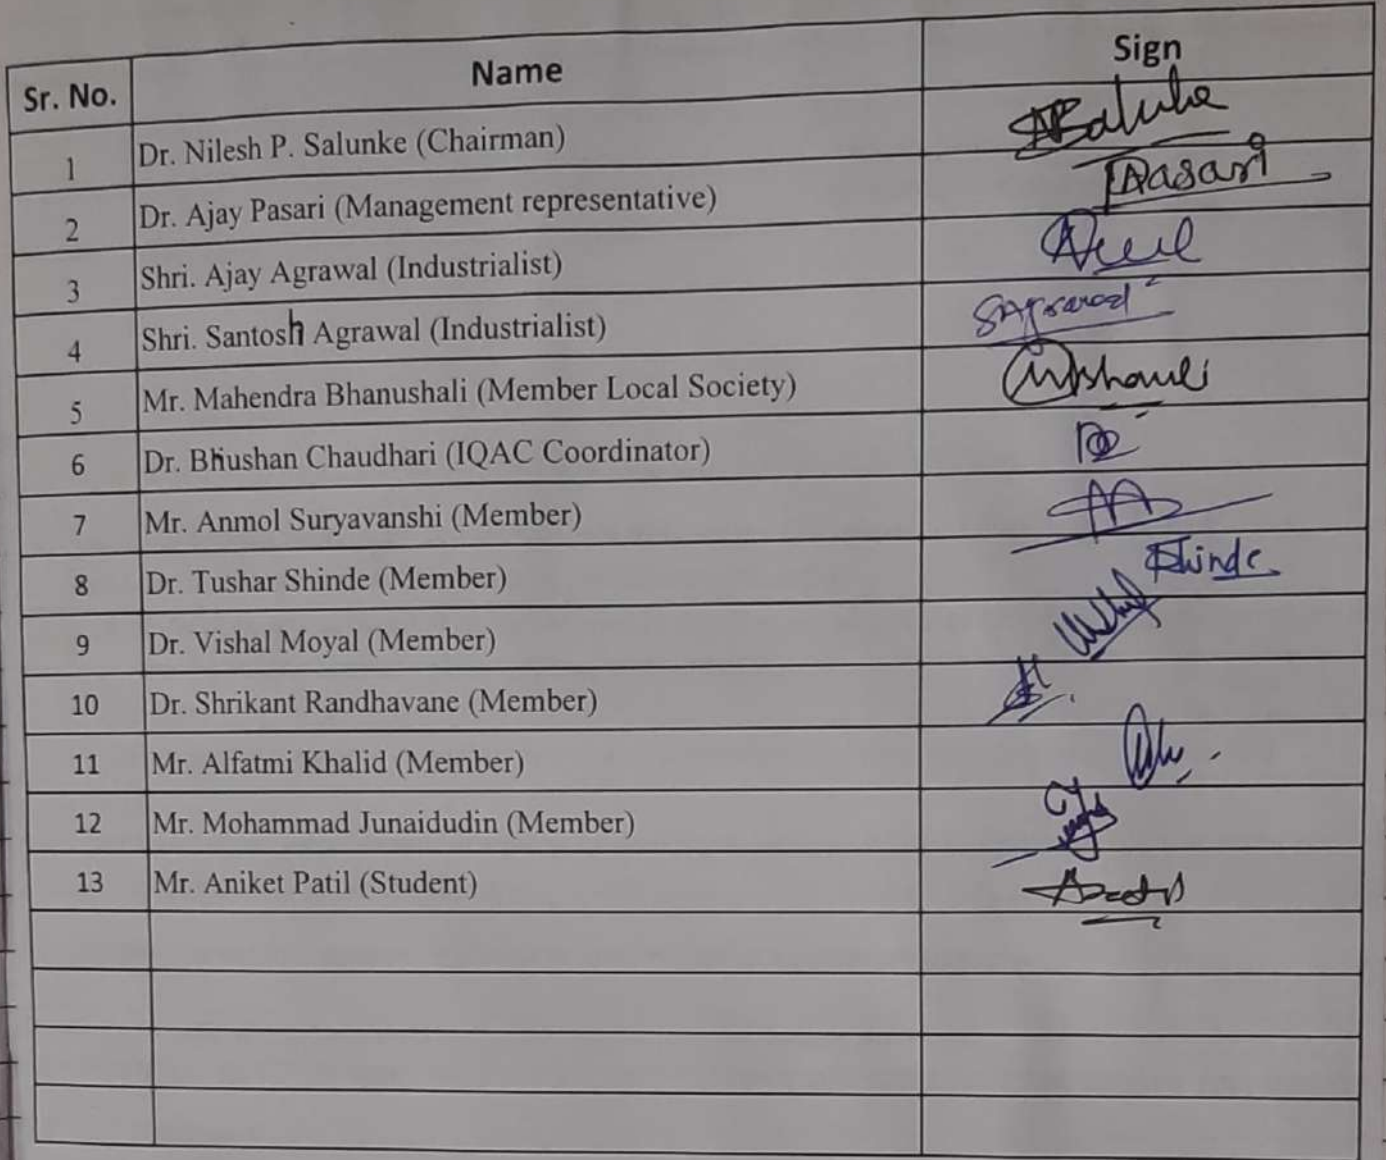 Sr. No. Name Sign
1 Dr. Nilesh P. Salunke (Chairman) NPSalunke
2 Dr. Ajay Pasari (Management representative) Pasari
3 Shri. Ajay Agrawal (Industrialist)
4 Shri. Santosh Agrawal (Industrialist) SAgrawal
5 Mr. Mahendra Bhanushali (Member Local Society)
6 Dr. Bhushan Chaudhari (IQAC Coordinator)
7 Mr. Anmol Suryavanshi (Member)
8 Dr. Tushar Shinde (Member) Shinde
9 Dr. Vishal Moyal (Member)
10 Dr. Shrikant Randhavane (Member)
11 Mr. Alfatmi Khalid (Member)
12 Mr. Mohammad Junaidudin (Member)
13 Mr. Aniket Patil (Student)